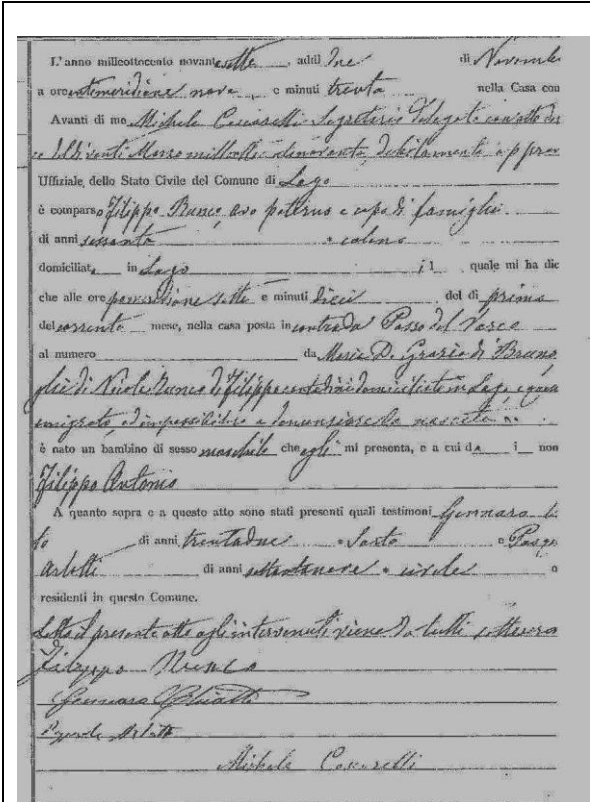 L'anno millottocento novantasette, addì due di Novembre
a ore antimeridiane nove e minuti trenta nella Casa com
Avanti di me Michele Segretario delegato con atto
venti Marzo mille debitamente appro
Uffiziale dello Stato Civile del Comune di Lago
è comparso Filippo Runco, avo paterno e capo di famiglia
di anni sessanta colono
domiciliato in Lago il quale mi ha dic
che alle ore pomeridiane sette e minuti dieci del dì primo
del corrente mese, nella casa posta in contrada Passo del
al numero da Maria D. Grazia di Bruno
glie di Nicola Runco di Filippo contadina domiciliata in Lago
emigrato, ed impossibilitato a denunziare la nascita
è nato un bambino di sesso maschile che egli mi presenta, e a cui dà i non
Filippo Antonio
A quanto sopra e a questo atto sono stati presenti quali testimoni Gennaro
to di anni trentadue Sarto e Pasq
Arlotti di anni settantanove civile
residenti in questo Comune.
Letto il presente atto agli intervenuti viene da tutti sottoscr
Filippo Runco
Gennaro
Arlotti
Michele